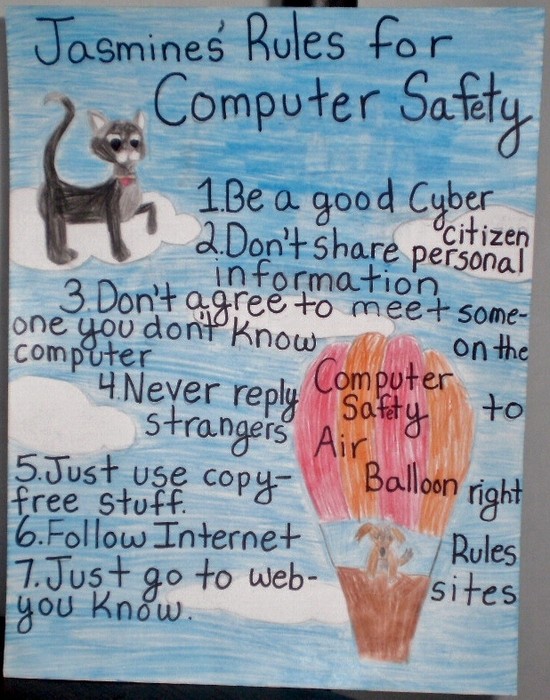 Jasmines' Rules for
Computer Safety
1.Be a good Cyber
citizen
2.Don't share personal
information
3.Don't agree to meet some-
one you don't know on the
computer
4.Never reply to
strangers
5.Just use copy- right
free stuff.
6.Follow Internet Rules
7.Just go to web- sites
you know.
Computer
Safety
Air
Balloon